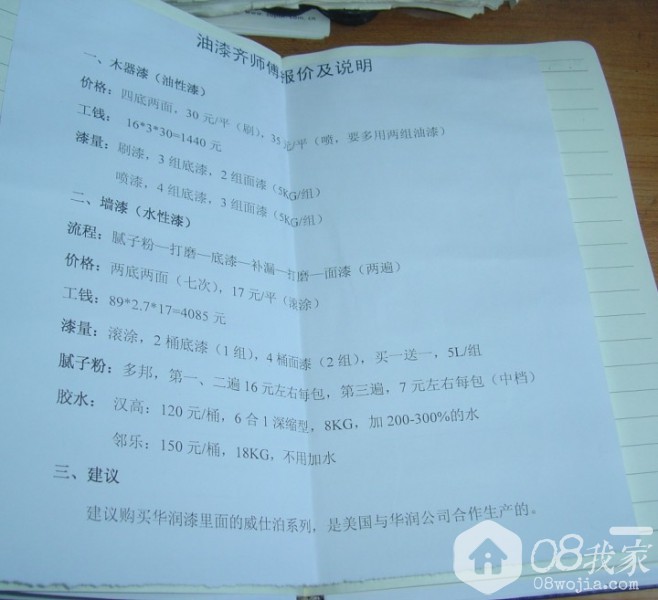 油漆齐师傅报价及说明
一、木器漆（油性漆）
价格：四底两面，30元/平（刷），35元/平（喷，要多用两组油漆）
工钱：16*3*30=1440元
漆量：刷漆，3组底漆，2组面漆（5KG/组）
喷漆，4组底漆，3组面漆（5KG/组）
二、墙漆（水性漆）
流程：腻子粉—打磨—底漆—补漏—打磨—面漆（两遍）
价格：两底两面（七次），17元/平（滚涂）
工钱：89*2.7*17=4085元
漆量：滚涂，2桶底漆（1组），4桶面漆（2组），买一送一，5L/组
腻子粉：多邦，第一、二遍16元左右每包，第三遍，7元左右每包（中档）
胶水：汉高：120元/桶，6合1深缩型，8KG，加200-300%的水
邻乐：150元/桶，18KG，不用加水
三、建议
建议购买华润漆里面的威仕泊系列，是美国与华润公司合作生产的。
08我家
08wojia.com